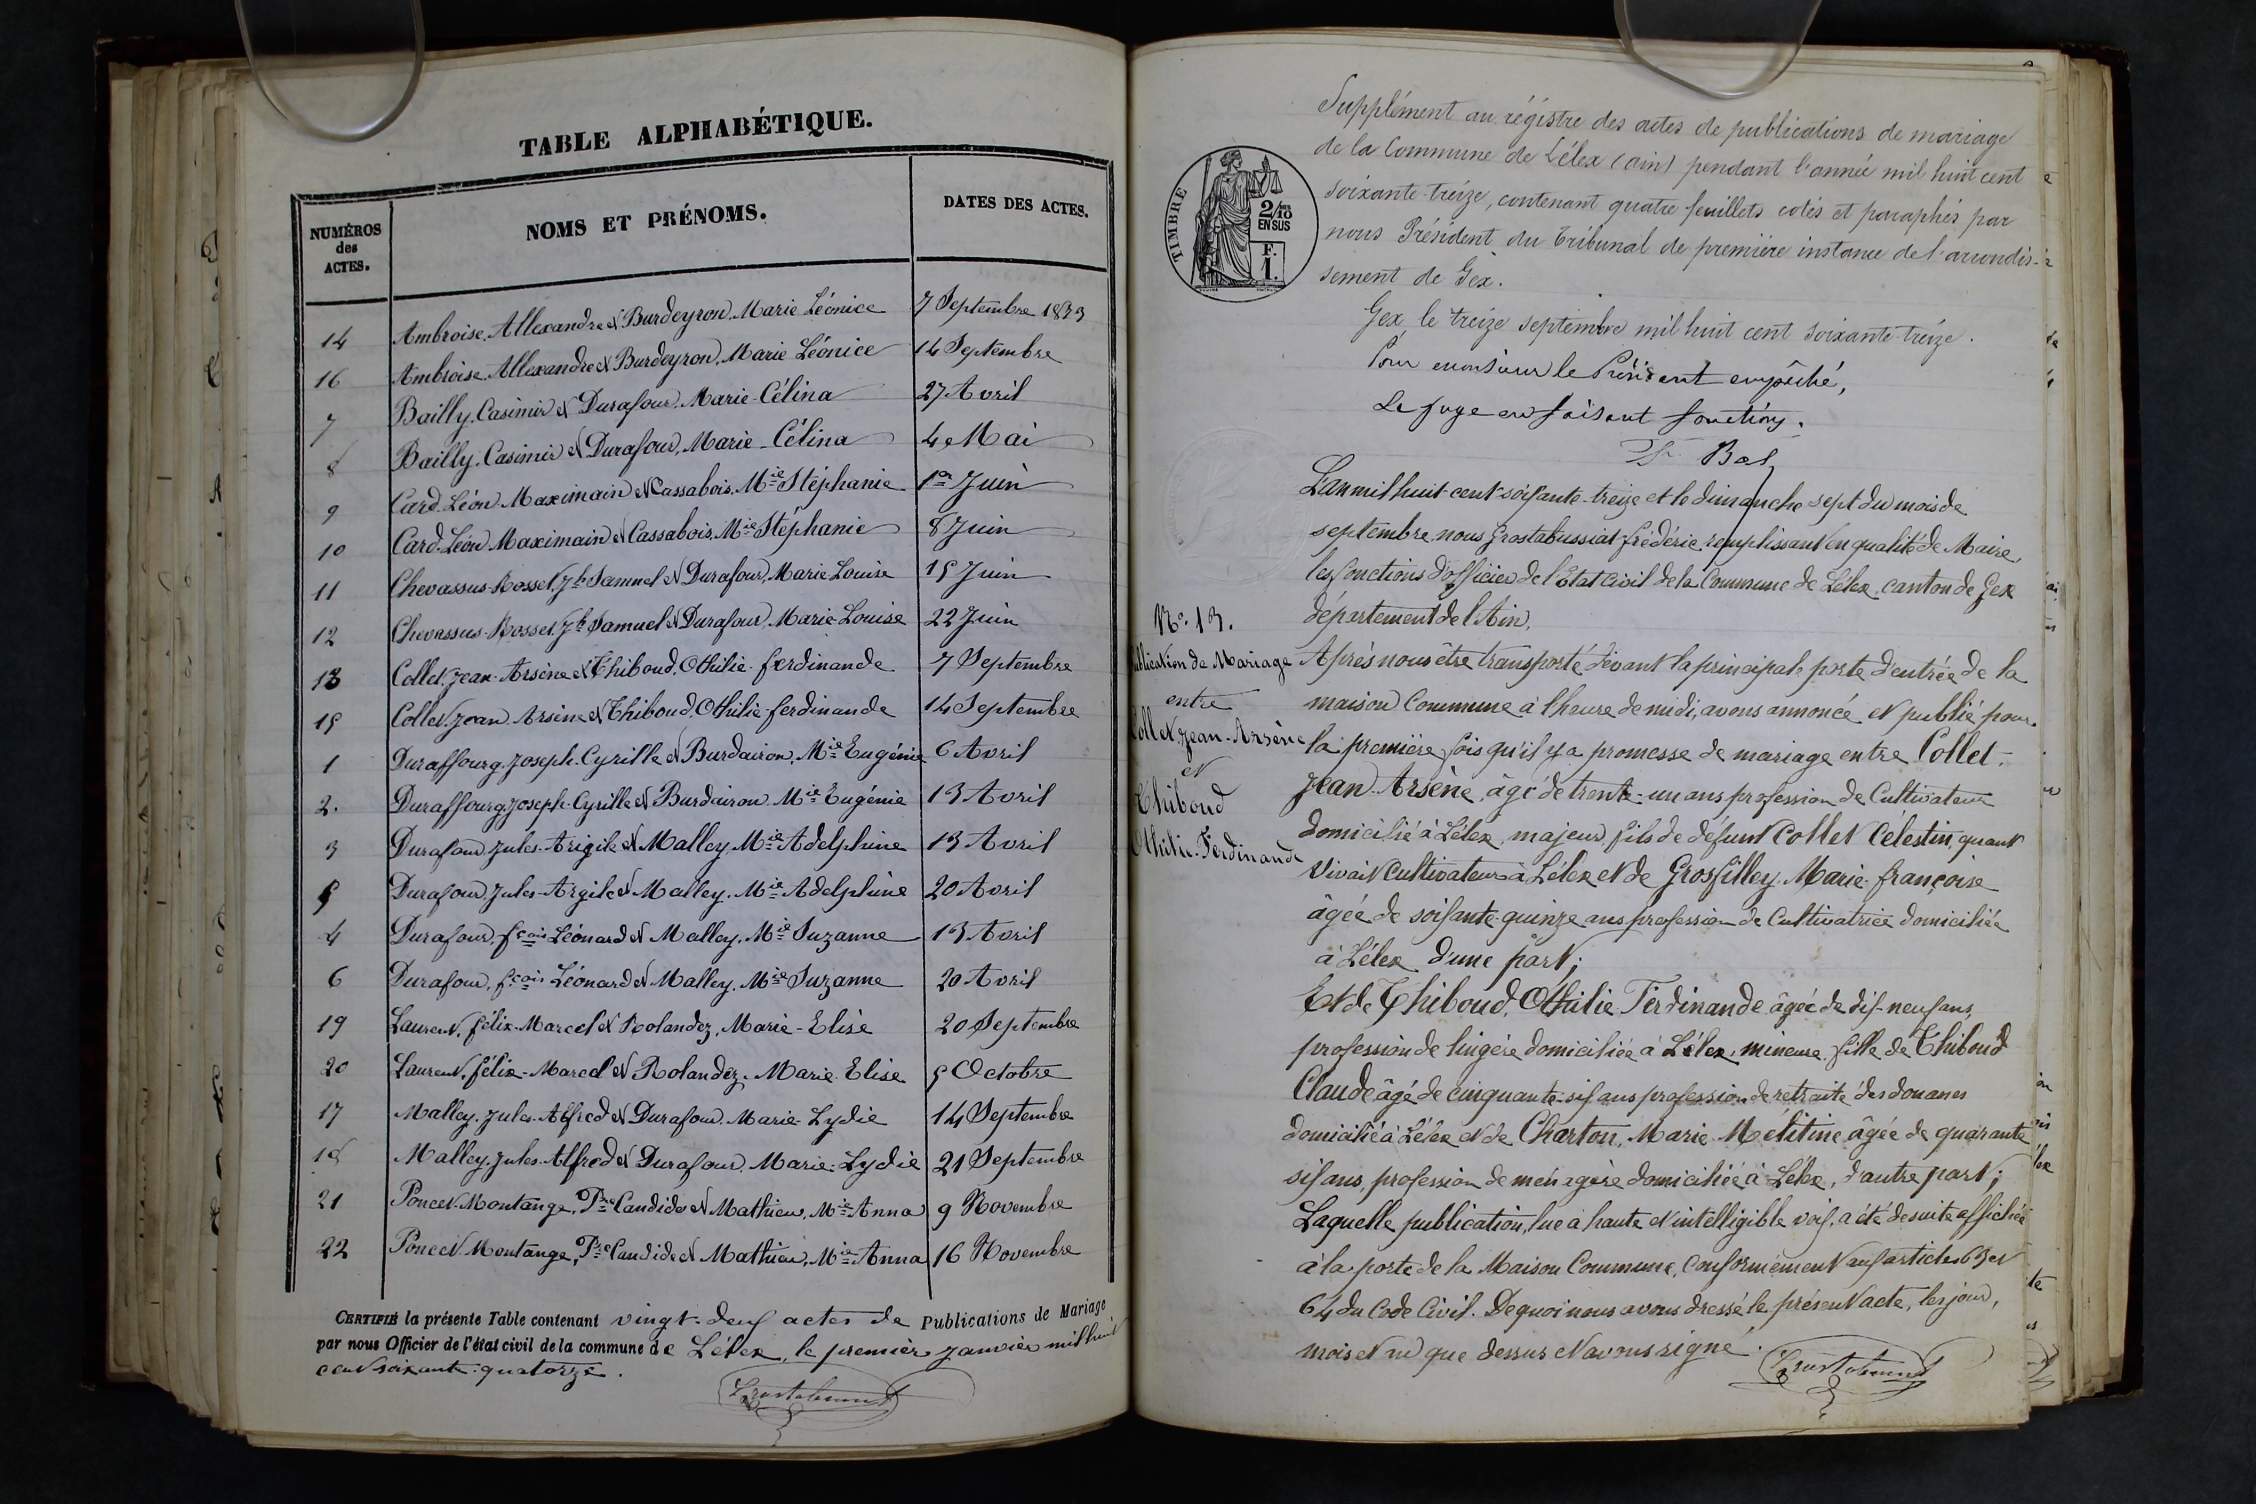 TABLE ALPHABÉTIQUE.
NUMÉROS des ACTES.
NOMS ET PRÉNOMS.
DATES DES ACTES.
14 Ambroise, Allexandre et Burdeyron, Marie Léonice 7 Septembre 1873
16 Ambroise, Allexandre et Burdeyron, Marie Léonice 14 Septembre
7 Bailly, Casimir et Durafour, Marie-Célina 27 Avril
8 Bailly, Casimir et Durafour, Marie-Célina 4 Mai
9 Card, Léon Maximain et Cassabois, Mie Stéphanie 1er Juin
10 Card, Léon Maximain et Cassabois, Mie Stéphanie 8 Juin
11 Chevassus-Rosset, Jh Samuel et Durafour, Marie Louise 15 Juin
12 Chevassus-Rosset, Jh Samuel et Durafour, Marie Louise 22 Juin
13 Collet, Jean-Arsène et Thiboud, Othilie-ferdinande 7 Septembre
15 Collet, Jean Arsène et Thiboud, Othilie-ferdinande 14 Septembre
1 Duraffourg, Joseph-Cyrille et Burdairon, Mie Eugénie 6 Avril
2. Duraffourg, Joseph-Cyrille et Burdairon, Mie Eugénie 13 Avril
3 Durafour, Jules-Arigile et Malley, Mie Adelphine 13 Avril
5 Durafour, Jules-Argile et Malley, Mie Adelphine 20 Avril
4 Durafour, fçois Léonard et Malley, Mie Suzanne 13 Avril
6 Durafour, fçois Léonard et Malley, Mie Suzanne 20 Avril
19 Laurent, félix-Marcel et Rolandez, Marie-Elise 20 Septembre
20 Laurent, félix-Marcel et Rolandez, Marie Elise 5 Octobre
17 Malley, Jules-Alfred et Durafour, Marie-Lydie 14 Septembre
18 Malley, Jules-Alfred et Durafour, Marie-Lydie 21 Septembre
21 Poncet-Montange, Pre Candide et Mathieu, Mie Anna 9 Novembre
22 Poncet Montange, Pre Candide et Mathieu, Mie Anna 16 Novembre
CERTIFIÉ la présente Table contenant vingt-deux actes de Publications de Mariage
par nous Officier de l'état civil de la commune de Lélex, le premier janvier mil huit
cent soixante-quatorze.
TIMBRE
2/10 EN SUS
F. 1.
Supplément au régistre des actes de publications de mariage
de la Commune de Lélex (ain) pendant l'année mil huit cent
soixante-treize, contenant quatre feuillets cotés et paraphés par
nous Président du Tribunal de première instance de l'arrondis-
sement de Gex.
Gex, le treize septembre mil huit cent soixante-treize.
Pour monsieur le Président empêché,
Le juge en faisant fonctions.
L'an mil huit-cent-soixante-treize et le dimanche sept du mois de
septembre, nous Grostabussiat frédéric, remplissant en qualité de Maire,
les fonctions d'officier de l'Etat civil de la Commune de Lélex, canton de Gex
département de l'Ain.
No. 13.
ublication de Mariage
entre
Collet, Jean-Arsène
et
Thiboud
Othilie-Ferdinande
Après nous être transporté devant la principale porte d'entrée de la
maison Commune à l'heure de midi, avons annoncé et publié pour
la première fois qu'il y a promesse de mariage entre Collet.
Jean-Arsène, âgé de trente-un ans profession de Cultivateur
domicilié à Lélex, majeur, fils de défunt Collet Célestin, quant
vivait cultivateur à Lélex et de Grosfilley, Marie-françoise
âgée de soixante-quinze ans profession de Cultivatrice domiciliée
à Lélex d'une part;
Et de Thiboud, Othilie Ferdinande âgée de dix-neuf ans,
profession de lingère domiciliée à Lélex, mineure, fille de Thiboud
Claude âgé de cinquante-six ans profession de retraité des douanes
domicilié à Lélex et de Charton, Marie Mélitine, âgée de quarante
six ans, profession de ménagère domiciliée à Lélex, d'autre part;
Laquelle publication, lue à haute et intelligible voix, a été de suite affichée
à la porte de la Maison Commune, Conformément aux articles 63 et
64 du Code Civil. De quoi nous avons dressé le présent acte, les jour,
mois et an que dessus et avons signé.